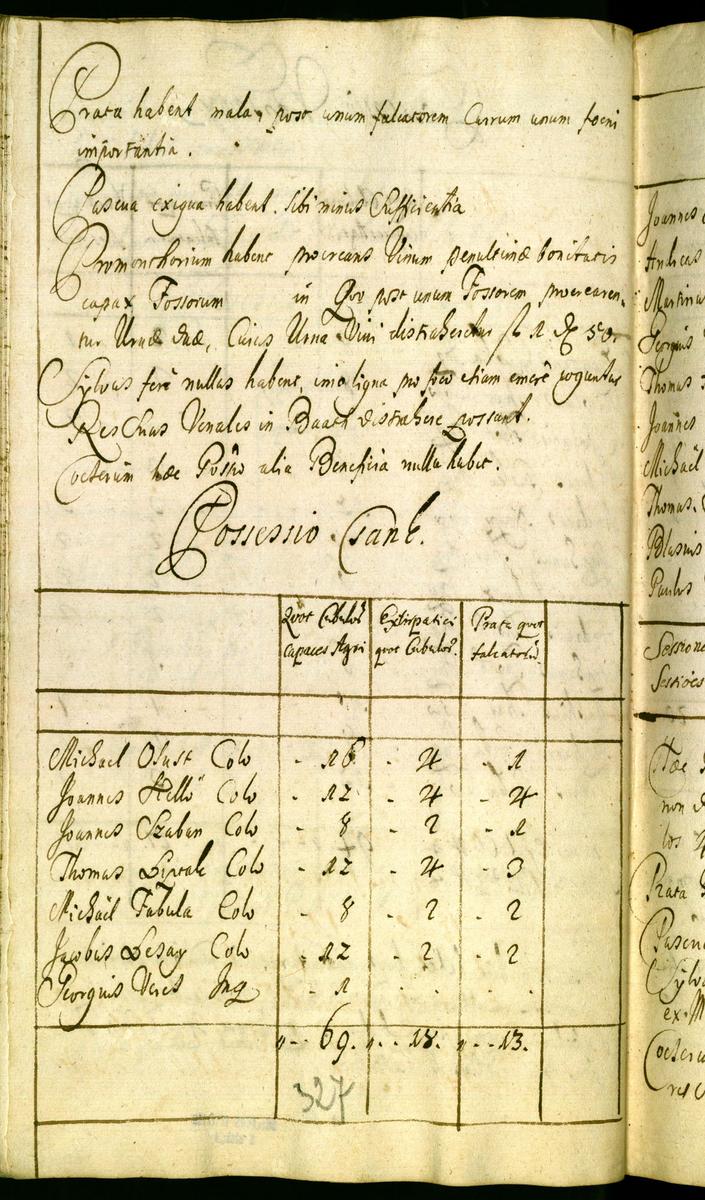 Prata habent mala, post unum falcatorem Currum unum foeni
importantia.
Pascua exigua habent. sibi minus Sufficientia
Promonthorium habent procreans Vinum penultimae bonitatis
capax Fossorum in Quo post unum Fossorem procrearen-
tur Urnae duae, Cuius Urna Vini distraheretur fl 1 d 50.
Sylvas ferè nullas habent, imo ligna pro foco etiam emere coguntur
Res Suas Venales in Baach distrahere possunt.
Coeterum haec Possio alia Beneficia nulla habet.
Possessio
Quot Cubulor capaces Agri
Extirpatici quot Cubulor.
Prata quot falcator.
Michael Colo - 16 - 4 - 1
Joannes Colo - 12 - 4 - 4
Joannes Szaban Colo - 8 - 2 - 1
Thomas Colo - 12 - 4 - 3
Michael Fabula Colo - 8 - 2 - 2
Jacobus Colo - 12 - 2 - 2
Georgius Veres Inq - 1 . .
69. 18. 13.
327
Joannes
Andreas
Martinus
Georgius
Thomas
Joannes
Michaël
Thomas
Blasius
Paulus
Haec
non
los
Prata
Coeteru